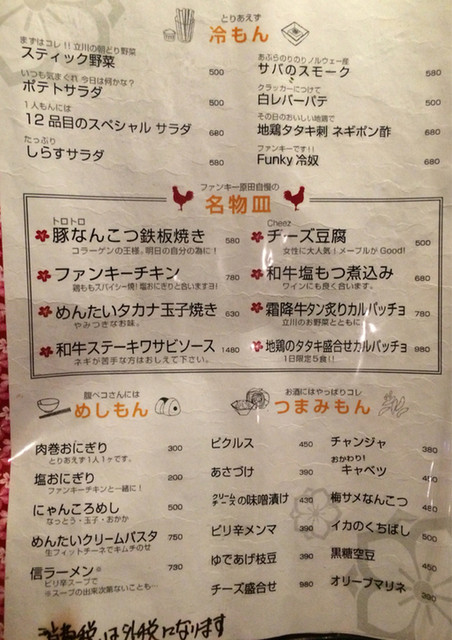 とりあえず
冷もん
まずはコレ!! 立川の朝どり野菜
スティック野菜 500
いつも気まぐれ 今日は何かな?
ポテトサラダ 500
1人もんには
12品目のスペシャル サラダ 680
たっぷり
しらすサラダ 580
あぶらのりのりノルウェー産
サバのスモーク 580
クラッカーにつけて
白レバーパテ 500
その日のおいしい地鶏で
地鶏タタキ刺 ネギポン酢 680
ファンキーです!!
Funky 冷奴 680
ファンキー原田自慢の
名物皿
トロトロ
豚なんこつ鉄板焼き 580
コラーゲンの王様。明日の自分の為に!
ファンキーチキン 780
鶏ももスパイシー焼!塩おにぎりと合いますヨ!
めんたいタカナ玉子焼き 630
やみつきなお味。
和牛ステーキワサビソース 1480
ネギが苦手な方はおしえて下さい。
Cheez
チーズ豆腐 500
女性に大人気!メープルが Good!
和牛塩もつ煮込み 680
ワインにも良く合います。
霜降牛タン炙りカルパッチョ 780
立川のお野菜とともに
地鶏のタタキ盛合せカルパッチョ 980
1日限定5食!!
腹ペコさんには
めしもん
肉巻おにぎり 300
とりあえず1人1ヶです。
塩おにぎり 200
ファンキーチキンと一緒に!
にゃんころめし 500
なっとう・玉子・おかか
めんたいクリームパスタ 750
生フィットチーネでキムチのせ
信ラーメン※ 730
ピリ辛スープで
※スープの出来次第ないことも…
お酒にはやっぱりコレ
つまみもん
ピクルス 450
あさづけ 390
クリームチーズの味噌漬け 430
ピリ辛メンマ 390
ゆであげ枝豆 390
チーズ盛合せ 980
チャンジャ 380
おかわり!
キャベツ 400
梅サメなんこつ 480
イカのくちばし 500
黒糖空豆 450
オリーブマリネ 390
消費税は外税になります